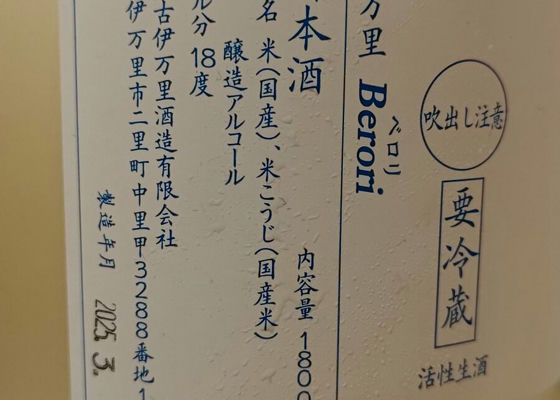 吹出し注意
要冷蔵
活性生酒
万里 Berori
ベロリ
本酒
内容量 1800
名 米(国産)、米こうじ(国産米)
醸造アルコール
ル分 18度
古伊万里酒造有限会社
伊万里市二里町中里甲3288番地1
製造年月 2025.3.